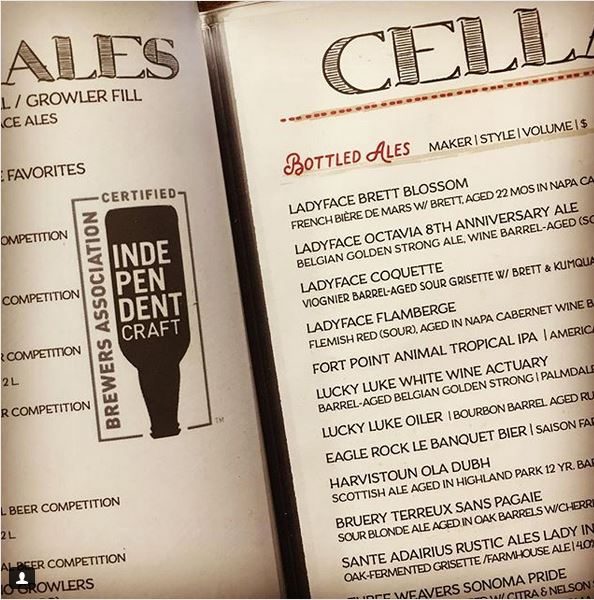 ALES
/ GROWLER FILL
ACE ALES
FAVORITES
COMPETITION
COMPETITION
COMPETITION
2 L
R COMPETITION
L BEER COMPETITION
2 L
AL BEER COMPETITION
GROWLERS
CERTIFIED
BREWERS ASSOCIATION
INDE
PEN
DENT
CRAFT
TM
CELLA
BOTTLED ALES MAKER | STYLE | VOLUME | $
LADYFACE BRETT BLOSSOM
FRENCH BIÈRE DE MARS W/ BRETT, AGED 22 MOS IN NAPA CA
LADYFACE OCTAVIA 8TH ANNIVERSARY ALE
BELGIAN GOLDEN STRONG ALE, WINE BARREL-AGED
LADYFACE COQUETTE
VIOGNIER BARREL-AGED SOUR GRISETTE W/ BRETT & KUMQUA
LADYFACE FLAMBERGE
FLEMISH RED (SOUR), AGED IN NAPA CABERNET WINE B
FORT POINT ANIMAL TROPICAL IPA | AMERICA
LUCKY LUKE WHITE WINE ACTUARY
BARREL-AGED BELGIAN GOLDEN STRONG | PALMDALE
LUCKY LUKE OILER | BOURBON BARREL AGED RU
EAGLE ROCK LE BANQUET BIER | SAISON FAR
HARVISTOUN OLA DUBH
SCOTTISH ALE AGED IN HIGHLAND PARK 12 YR. BAR
BRUERY TERREUX SANS PAGAIE
SOUR BLONDE ALE AGED IN OAK BARRELS W/CHERR
SANTE ADAIRIUS RUSTIC ALES LADY IN
OAK-FERMENTED GRISETTE /FARMHOUSE ALE | 4.0%
THREE WEAVERS SONOMA PRIDE
W/ CITRA & NELSON